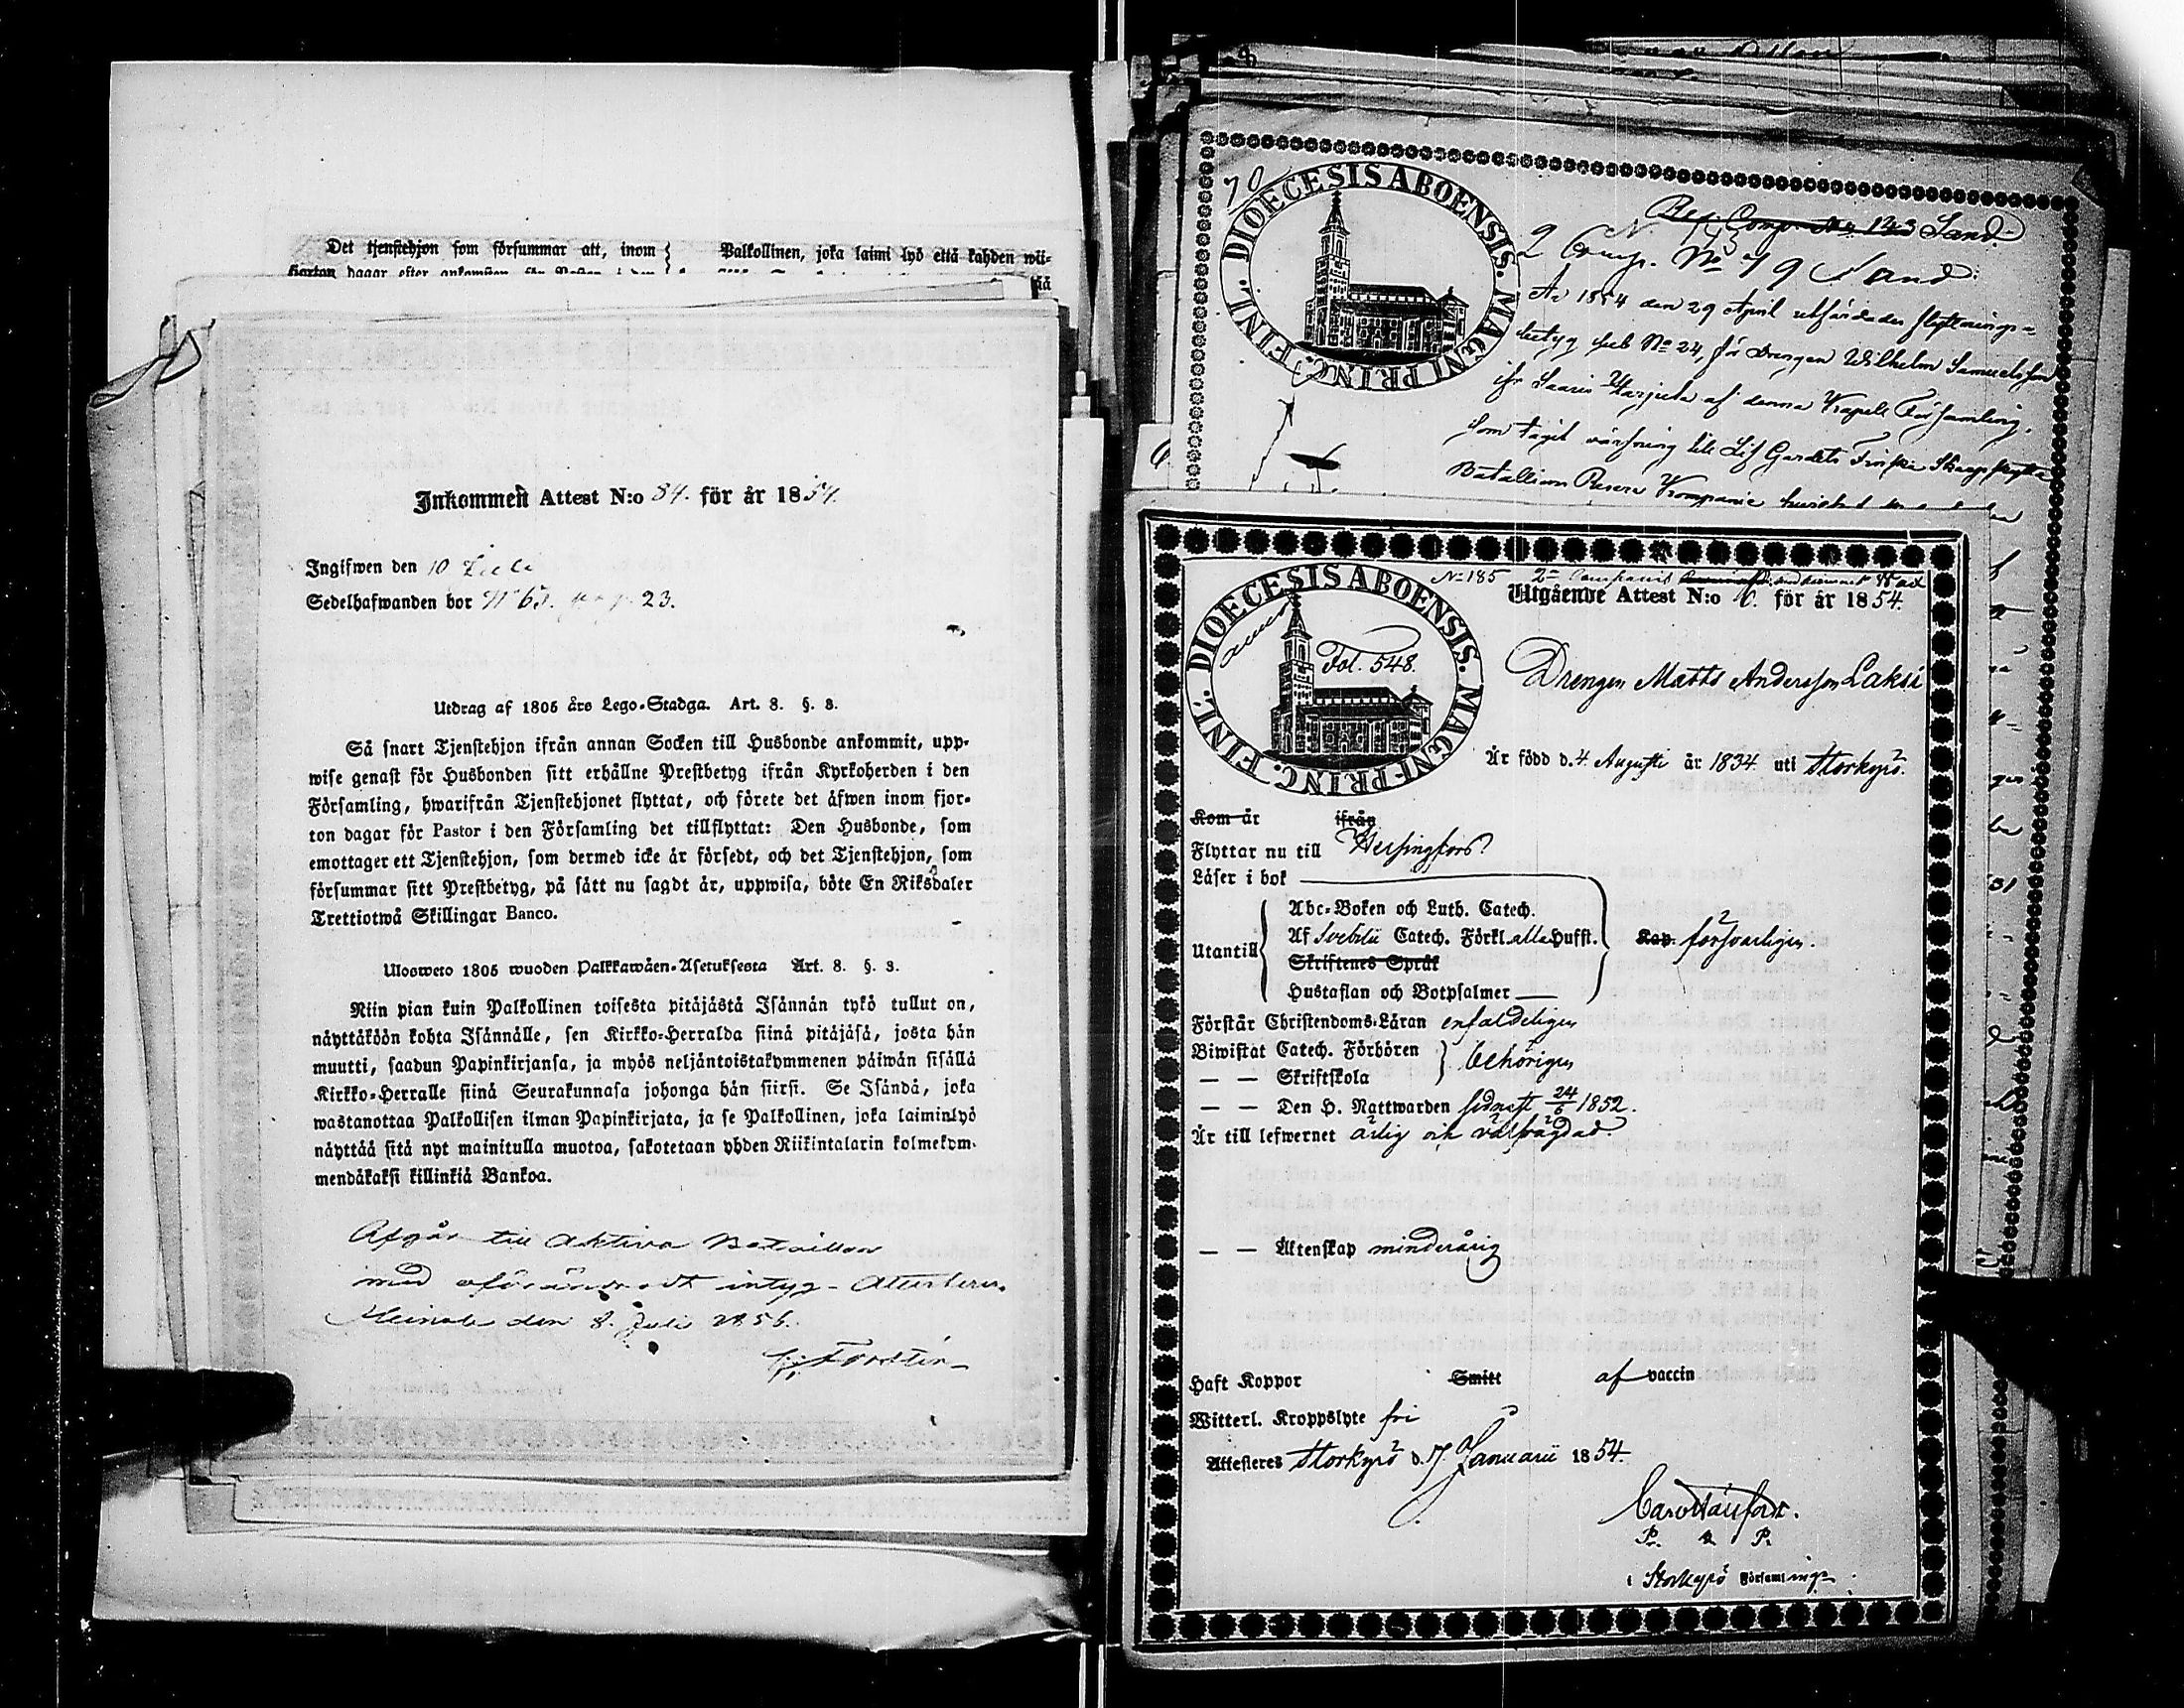 Det tjenstehjon som försummar att, inom
Palkollinen, joka laimi lyö että kahden wii-
Inkommen Attest N:o 84. för år 1854.
Ingifwen den 10 Juli
Sedelhafwanden bor N:o 65. pag. 23.
Utdrag af 1805 års Lego-Stadga. Art. 8. §. 3.
Så snart Tjenstehjon ifrån annan Socken till Husbonde ankommit, upp-
wise genast för Husbonden sitt erhållne Prestbetyg ifrån Kyrkoherden i den
Församling, hwarifrån Tjenstehjonet flyttat, och förete det äfwen inom fjor-
ton dagar för Pastor i den Församling det tillflyttat: Den Husbonde, som
emottager ett Tjenstehjon, som dermed icke är försedt, och det Tjenstehjon, som
försummar sitt Prestbetyg, på sätt nu sagdt är, uppwisa, böte En Riksdaler
Trettiotwå Skillingar Banco.
Ulosweto 1805 wuoden Palkkawäen-Asetuksesta Art. 8. §. 3.
Niin pian kuin Palkollinen toisesta pitäjästä Isännän tykö tullut on,
näyttäköön kohta Isännälle, sen Kirkko-Herralda siinä pitäjäsä, josta hän
muutti, saadun Papinkirjansa, ja myös neljäntoistakymmenen päiwän sisällä
Kirkko-Herralle siinä Seurakunnasa johonga hän siirsi. Se Isändä, joka
wastanottaa Palkollisen ilman Papinkirjata, ja se Palkollinen, joka laiminlyö
näyttää sitä nyt mainitulla muotoa, sakotetaan yhden Riikintalarin kolmekym-
mendäkaksi killinkiä Bankoa.
Afgår till Aktiva Bataillon
med oförändradt intyg - Attesterar.
Heinola den 8. Juli 1856.
Forstén
70
DIOECESIS ABOENSIS. MAGNI PRINC. FINL.
Comp. No 143 Land.
2 Comp. No 79 Land.
År 1854 den 29 April utfärdades flyttnings-
betyg sub No 24, för Drengen Wilhelm Samuelsson
ifr Saari Harjula af denna Kapell Församling,
som tagit värfning till Lif Gardets Finska Skarpskytte
Bataillions Reserv Kompanie
DIOECESIS ABOENSIS. MAGNI PRINC. FINL.
Fol. 548.
N:185 2:a Companie
Utgående Attest N:o 10. för år 1854.
Drengen Matts Andersson Laksi
Är född d. 4 Augusti år 1834 uti Storkyro.
Kom år ifrån
Flyttar nu till Helsingfors
Läser i bok
Utantill
Abc-Boken och Luth. Catech.
Af Svebilii Catech. Förkl. alla Hufst.
Skriftenes Språk
Hustaflan och Botpsalmer
Kap. försvarligen.
Förstår Christendoms-Läran enfaldeligen
Biwistat Catech. Förhören
— — Skriftskola
behörigen
— — Den H. Nattwarden sednast 24/6 1852.
Är till lefwernet ärlig och välfrägdad.
— — Äktenskap minderårig
Haft Koppor Smitt af vaccin
Witterl. Kroppslyte fri
Attesteres Storkyro d. 17 Januarii 1854.
P. & P.
i Storkyro Församling.